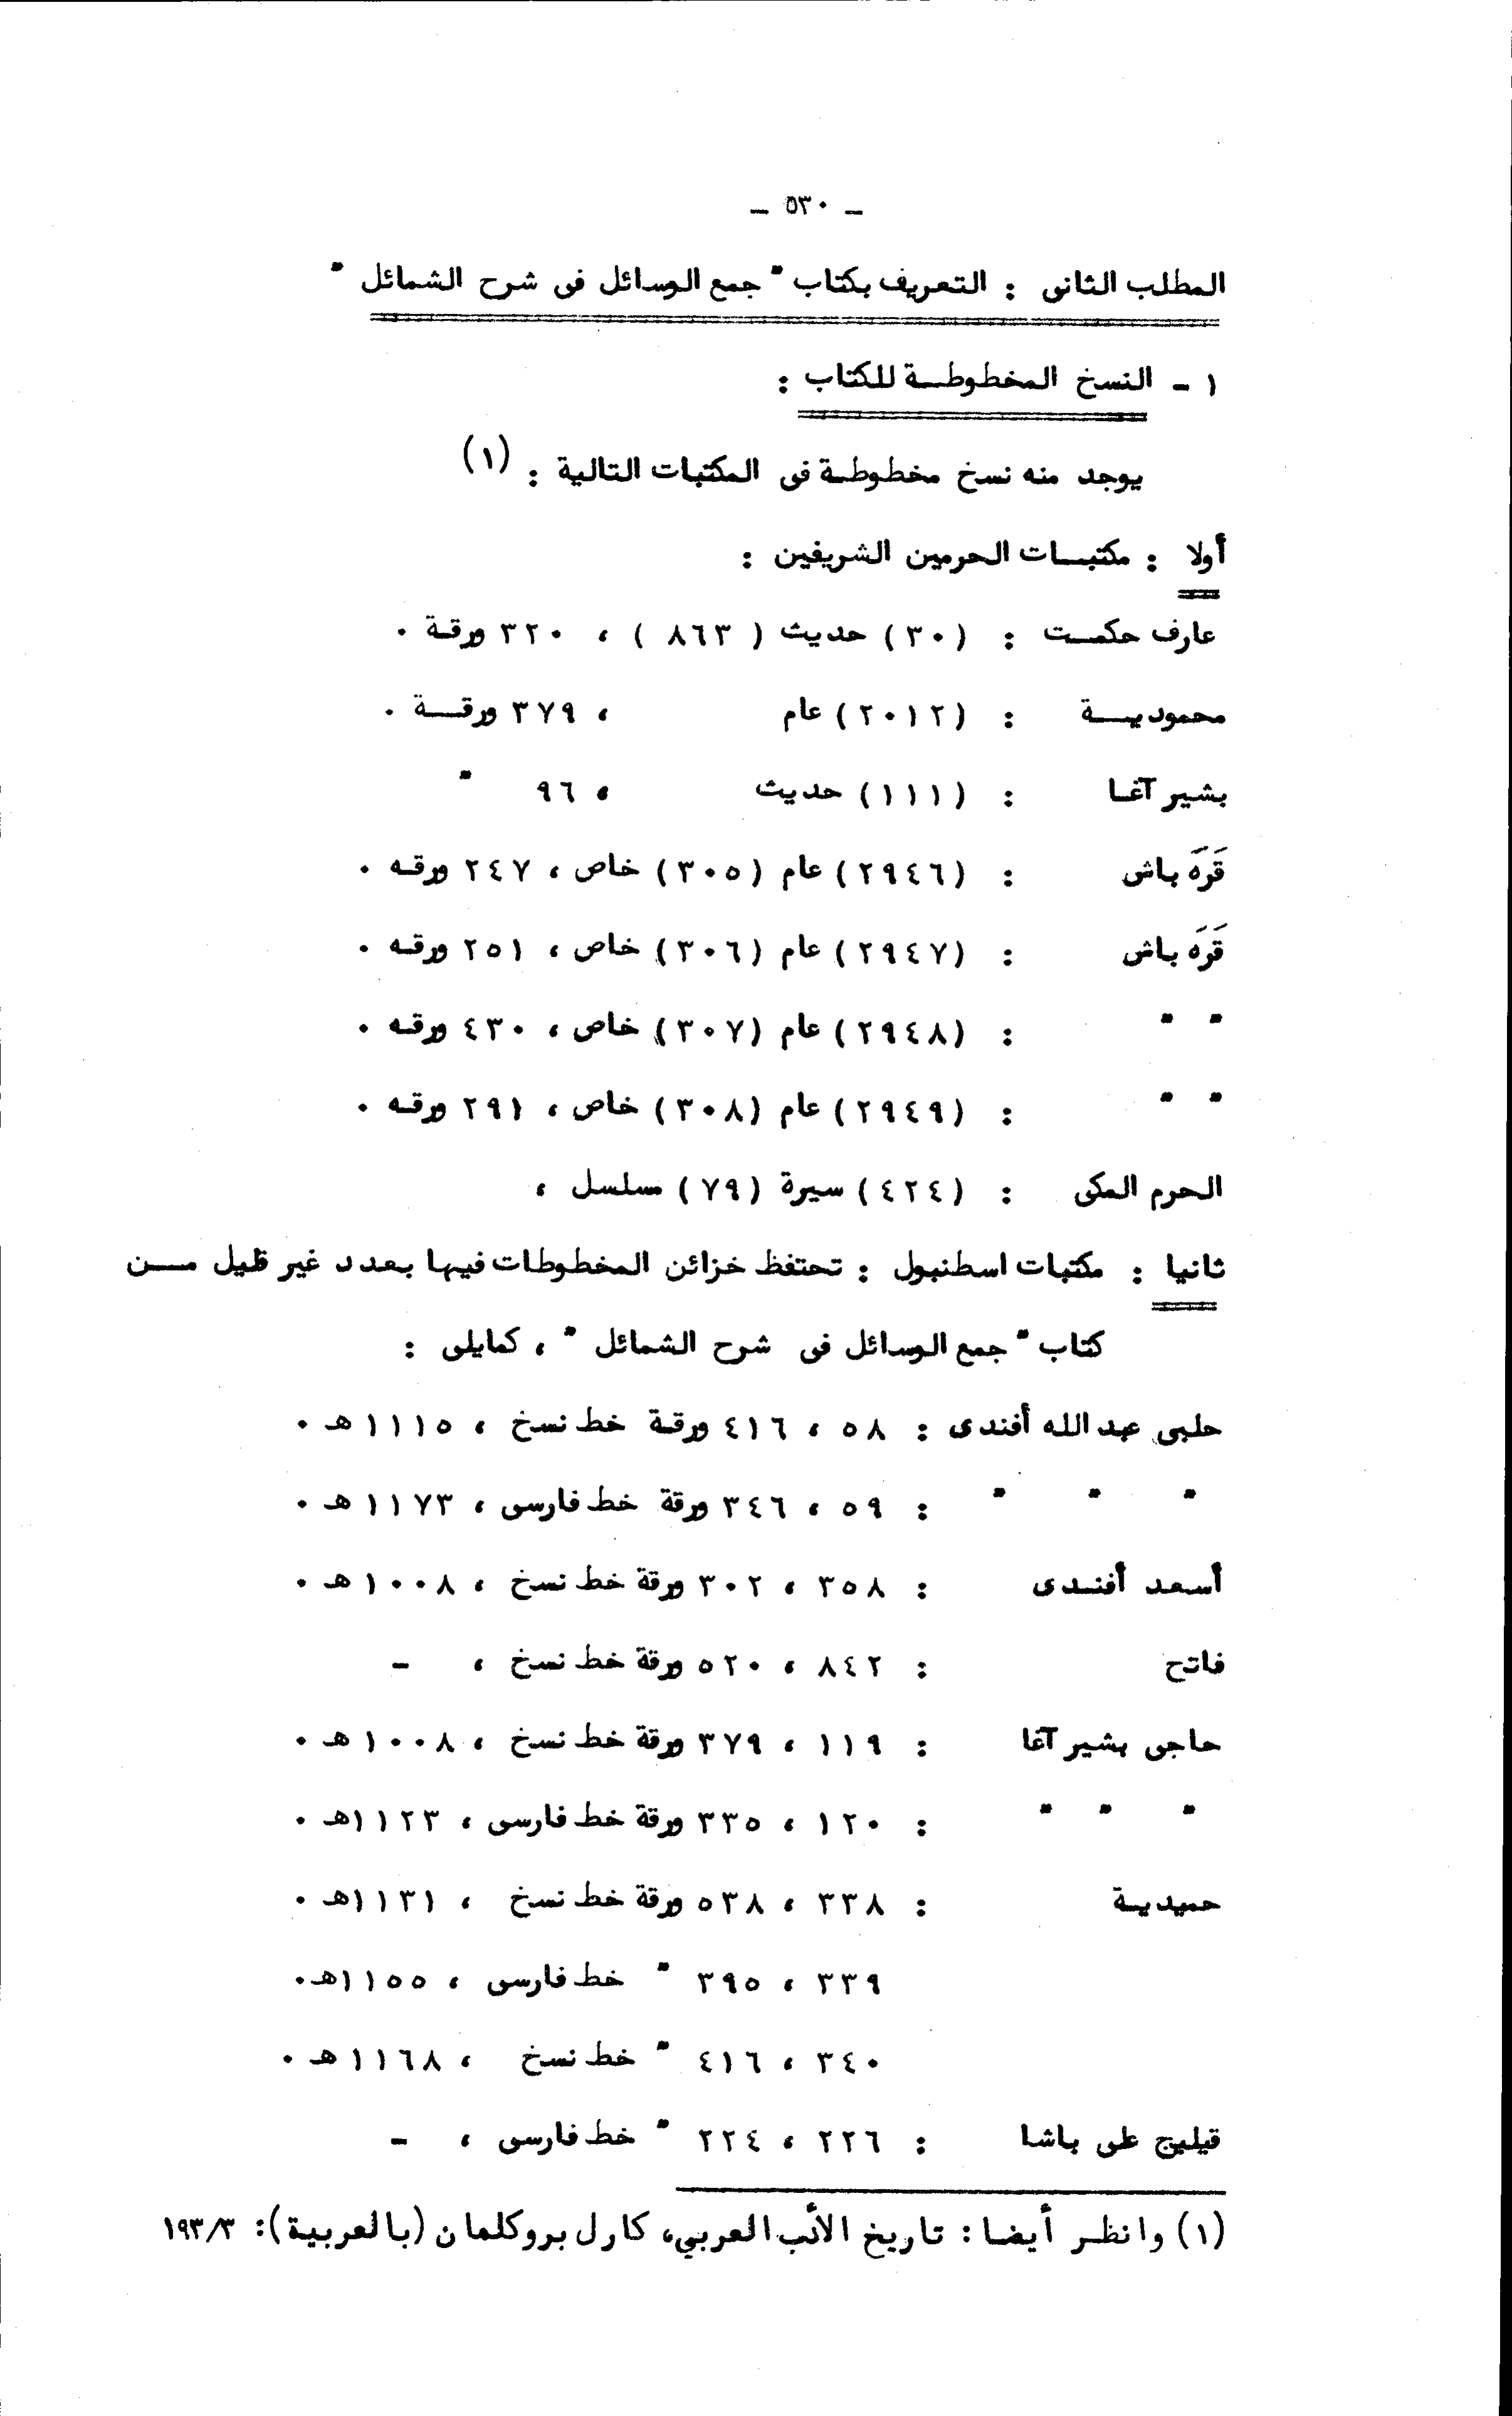 - ٥٣٠ -
المطلب الثانى : التعريف بكتاب " جمع الوسائل فى شرح الشمائل "
١ - النسخ المخطوطة للكتاب :
يوجد منه نسخ مخطوطة فى المكتبات التالية : (١)
أولا : مكتبات الحرمين الشريفين :
عارف حكمت : (٣٠) حديث ( ٨٦٣ ) ، ٣٢٠ ورقة .
محمودية : (٢٠١٢) عام ، ٣٧٩ ورقة .
بشير آغا : (١١١) حديث ، ٩٦ "
قَرَه باش : (٢٩٤٦) عام (٣٠٥) خاص ، ٢٤٧ ورقه .
قَرَه باش : (٢٩٤٧) عام (٣٠٦) خاص ، ٢٥١ ورقه .
" " : (٢٩٤٨) عام (٣٠٧) خاص ، ٤٣٠ ورقه .
" " : (٢٩٤٩) عام (٣٠٨) خاص ، ٢٩١ ورقه .
الحرم المكى : (٤٢٤) سيرة (٧٩) مسلسل ،
ثانيا : مكتبات اسطنبول : تحتفظ خزائن المخطوطات فيها بعدد غير قليل من
كتاب " جمع الوسائل فى شرح الشمائل " ، كمايلى :
حلبى عبد الله أفندى : ٥٨ ، ٤١٦ ورقة خط نسخ ، ١١١٥ هـ .
" " " : ٥٩ ، ٣٤٦ ورقة خط فارسى ، ١١٧٣ هـ .
أسعد أفندى : ٣٥٨ ، ٣٠٢ ورقة خط نسخ ، ١٠٠٨ هـ .
فاتح : ٨٤٢ ، ٥٢٠ ورقة خط نسخ ، -
حاجى بشير آغا : ١١٩ ، ٣٧٩ ورقة خط نسخ ، ١٠٠٨ هـ .
" " " : ١٢٠ ، ٣٣٥ ورقة خط فارسى ، ١١٢٣هـ .
حميدية : ٣٣٨ ، ٥٣٨ ورقة خط نسخ ، ١١٣١هـ .
٣٣٩ ، ٣٩٥ " خط فارسى ، ١١٥٥هـ.
٣٤٠ ، ٤١٦ " خط نسخ ، ١١٦٨ هـ .
قيليج على باشا : ٢٢٦ ، ٢٢٤ " خط فارسى ، -
(١) وانظر أيضا : تاريخ الأدب العربي، كارل بروكلمان (بالعربية): ١٩٣/٣